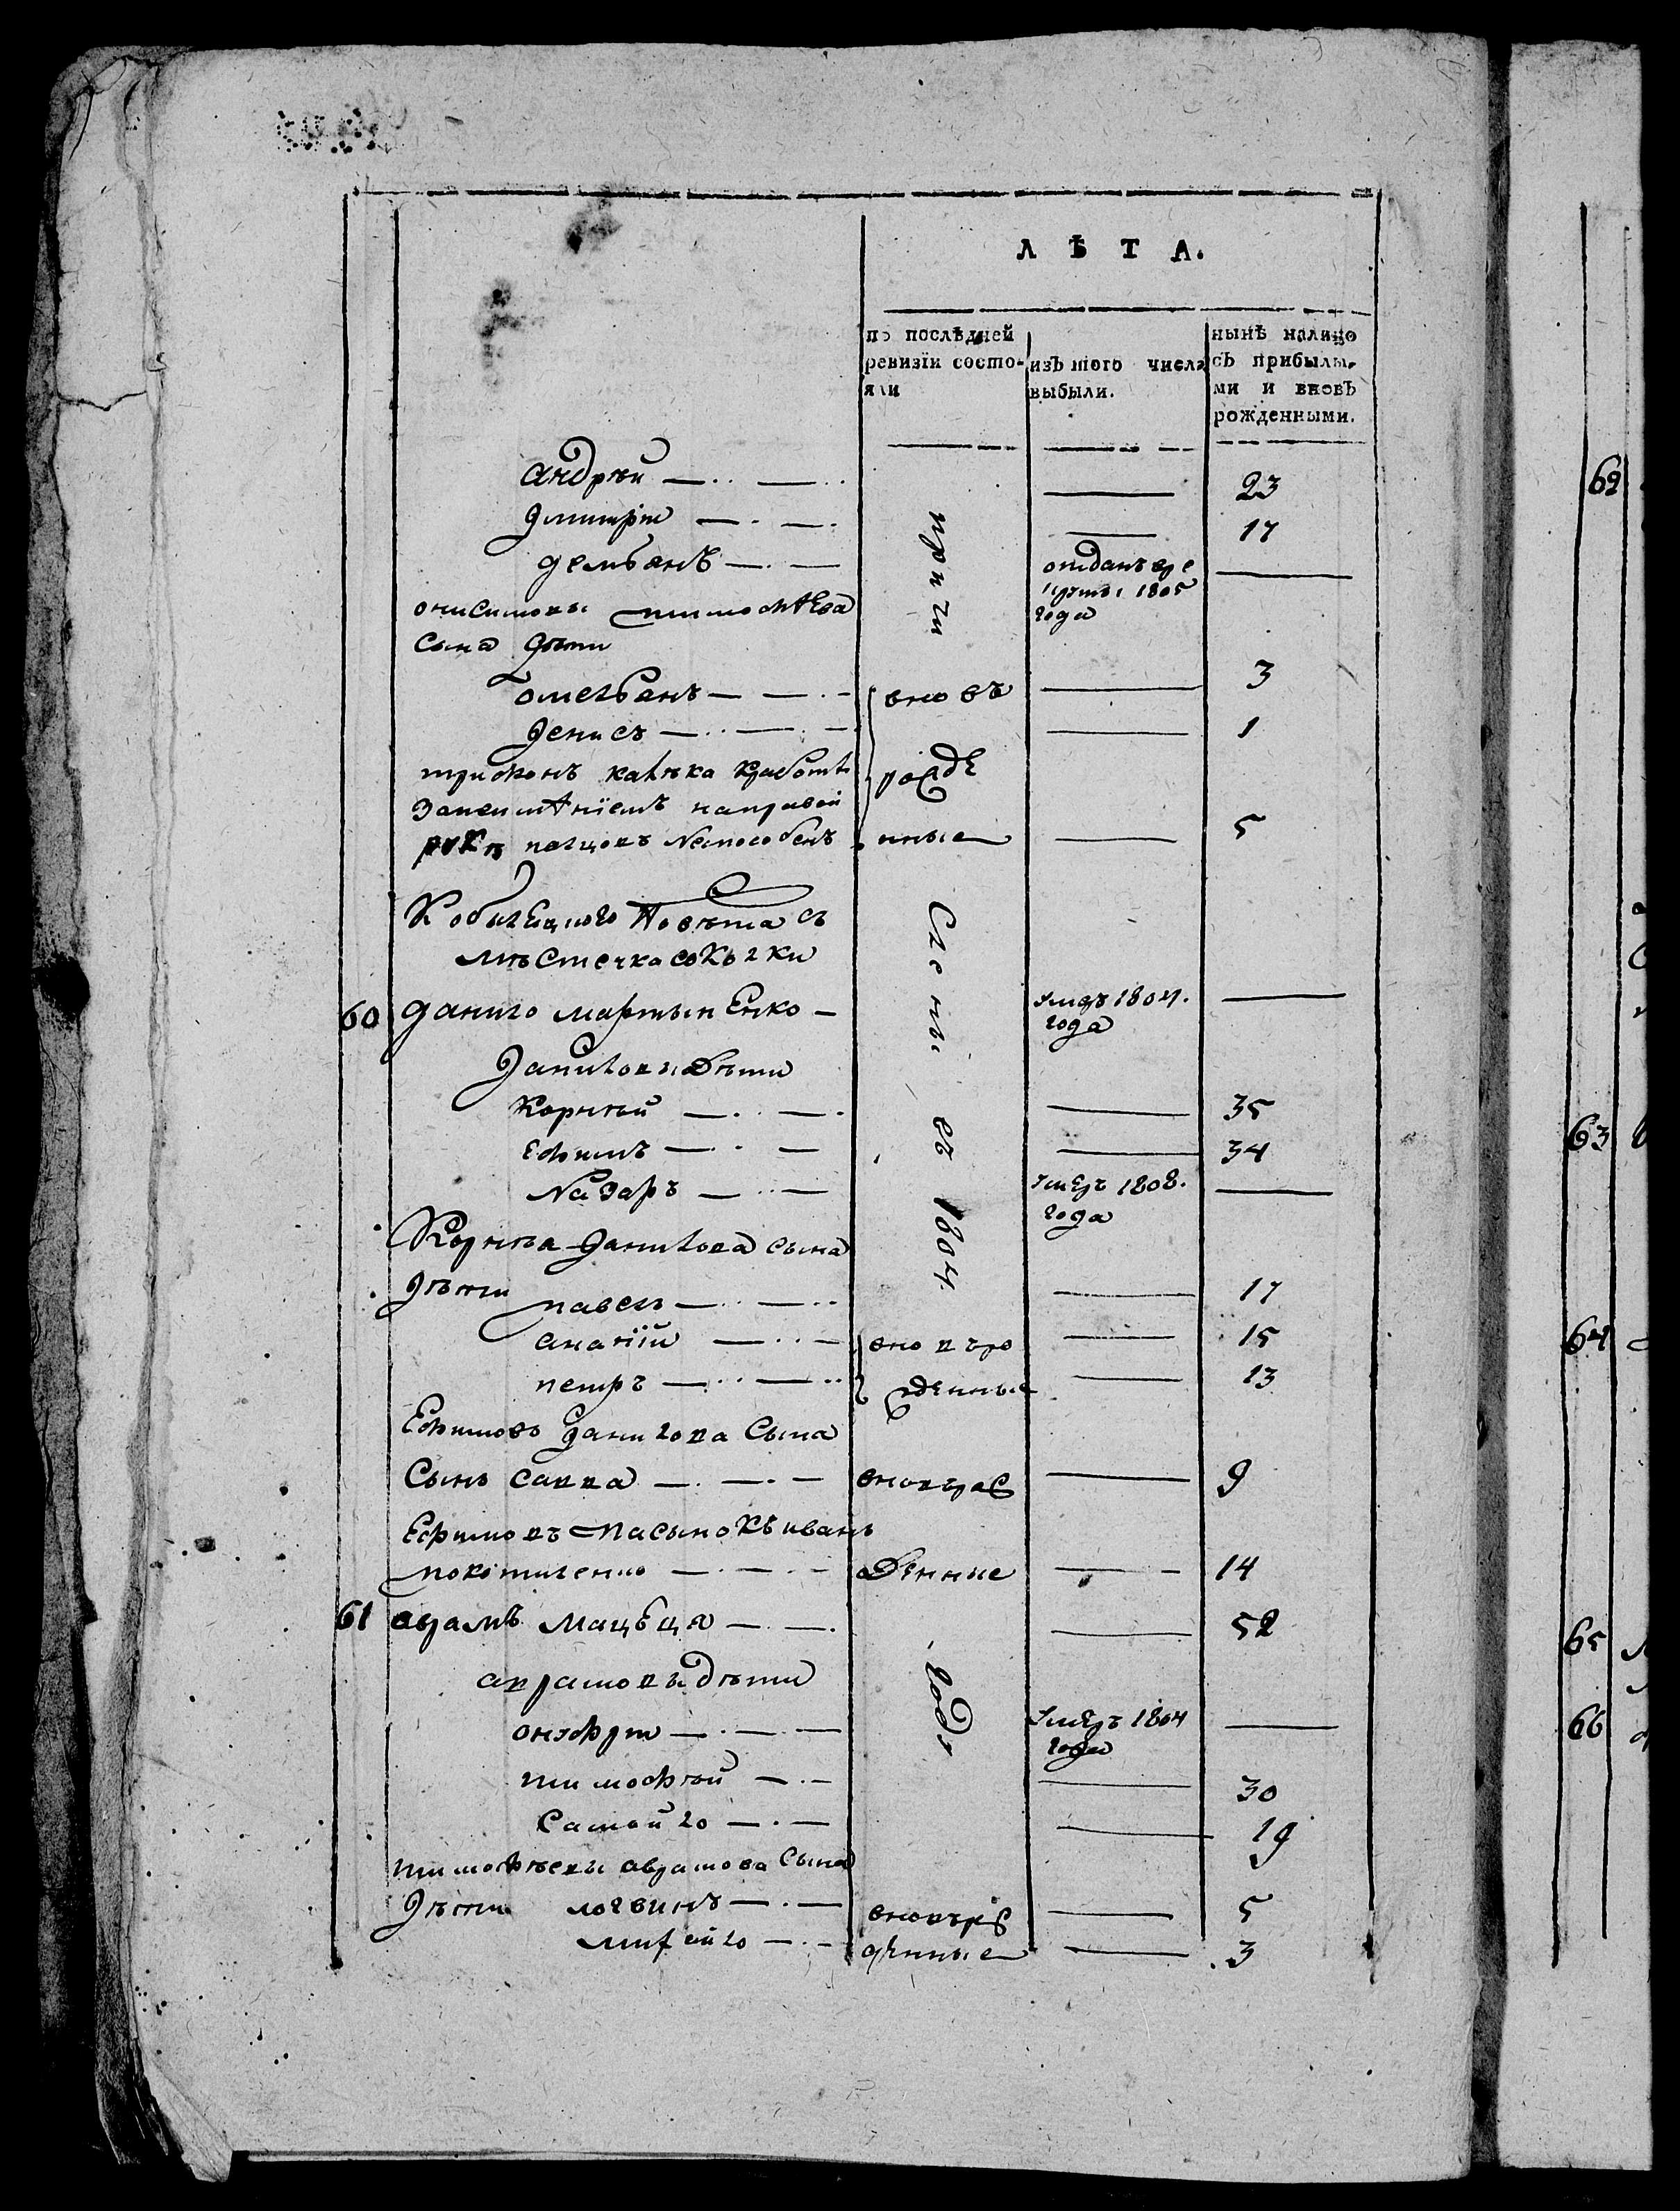 ЛѢТА.
по послѣдней ревизіи состояли
изъ того числа выбыли.
нынѣ налицо съ прибылыми и вновь рожденными.
Андрѣй — 23
Дмитрій — 17
Демьянъ отданъ вре
круты 1805
года —
Онисимовы Тимофѣева
сына дѣти
Омельянъ — вновь — 3
Денисъ — 1
Трифонъ калѣка Кработѣ рожде
направой
рукѣ палцовъ неспособенъ нные — 5
причи
слены въ 1804
году
Кобыляцкого Повѣта съ
мѣстечка Сокълки
60 Данило Мартыненко — умеръ 1804.
года —
Даниловы дѣти
Корнѣй — 35
Ефимъ — 34
Назаръ — умеръ 1808.
года —
Корнѣа Данилова сына
дѣти
Павелъ — 17
Ананій — вновъро — 15
Петръ — жденные — 13
Ефимовъ Данилова сына
сынъ Савва — вновърож — 9
Ефимовъ пасынокъ Иванъ
денные — 14
61 Аврамъ Мацеця — 52
Аврамовы дѣти
Онуфрій — умеръ 1804
года —
Тимофѣй — 30
Самойло — 19
Тимофѣевы Аврамова сына
дѣти Логвинъ — вновърож — 5
Михайло — денные — 3
62
63
64
65
66